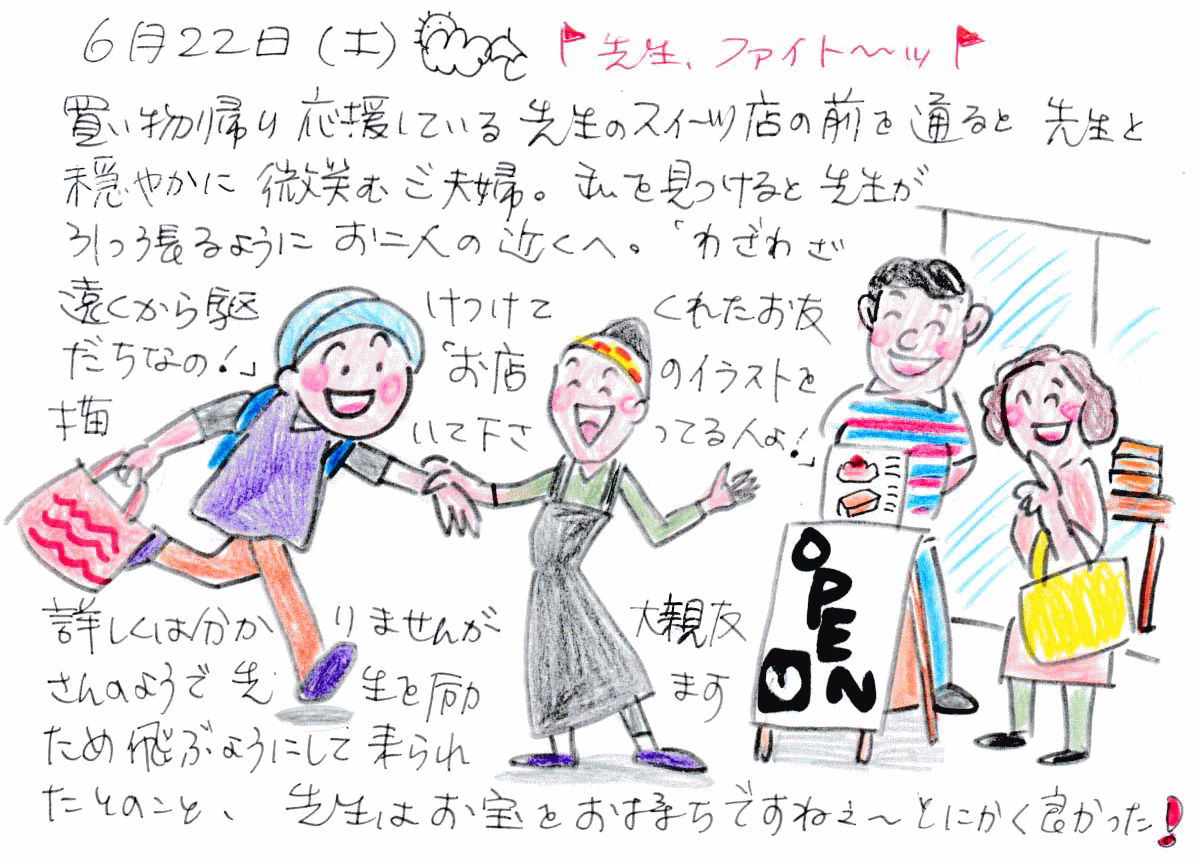 6月22日(土) 先生、ファイト〜〜ッ
買い物帰り 応援している 先生のスイーツ店の前を通ると 先生と
穏やかに 微笑むご夫婦。私を見つけると 先生が
引っ張るように お二人の近くへ。「わざわざ
遠くから駆けつけてくれたお友
だちなの!」「お店のイラストを
描いて下さってる人よ!」
OPEN
詳しくは分かりませんが 大親友
さんのようで 先生を励ます
ため飛ぶようにして来られ
たとのこと、先生はお宝をお持ちですねぇ〜とにかく良かった!